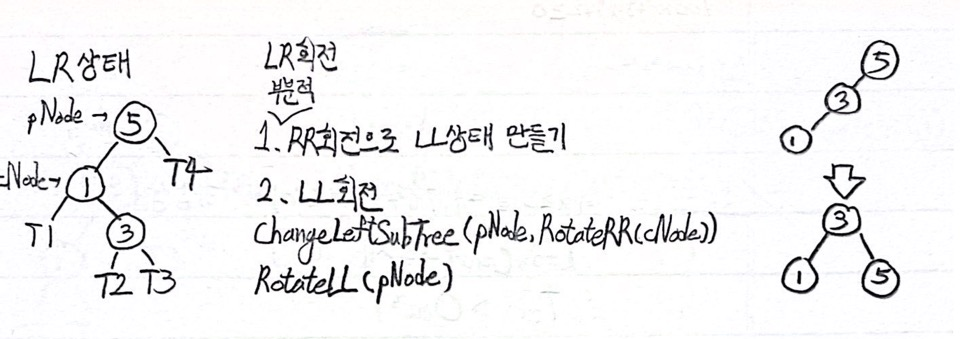 LR상태
pNode → 5
cNode→ 1
T4
T1
3
T2 T3
LR회전
부분적
1. RR회전으로 LL상태 만들기
2. LL회전
ChangeLeftSubTree(pNode, RotateRR(cNode))
RotateLL(pNode)
5
3
1
3
1
5